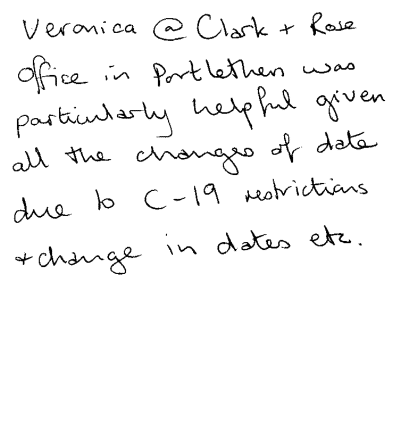 Veronica @ Clark + Rose
office in Portlethen was
particularly helpful given
all the changes of date
due to C-19 restrictions
+ change in dates etc.